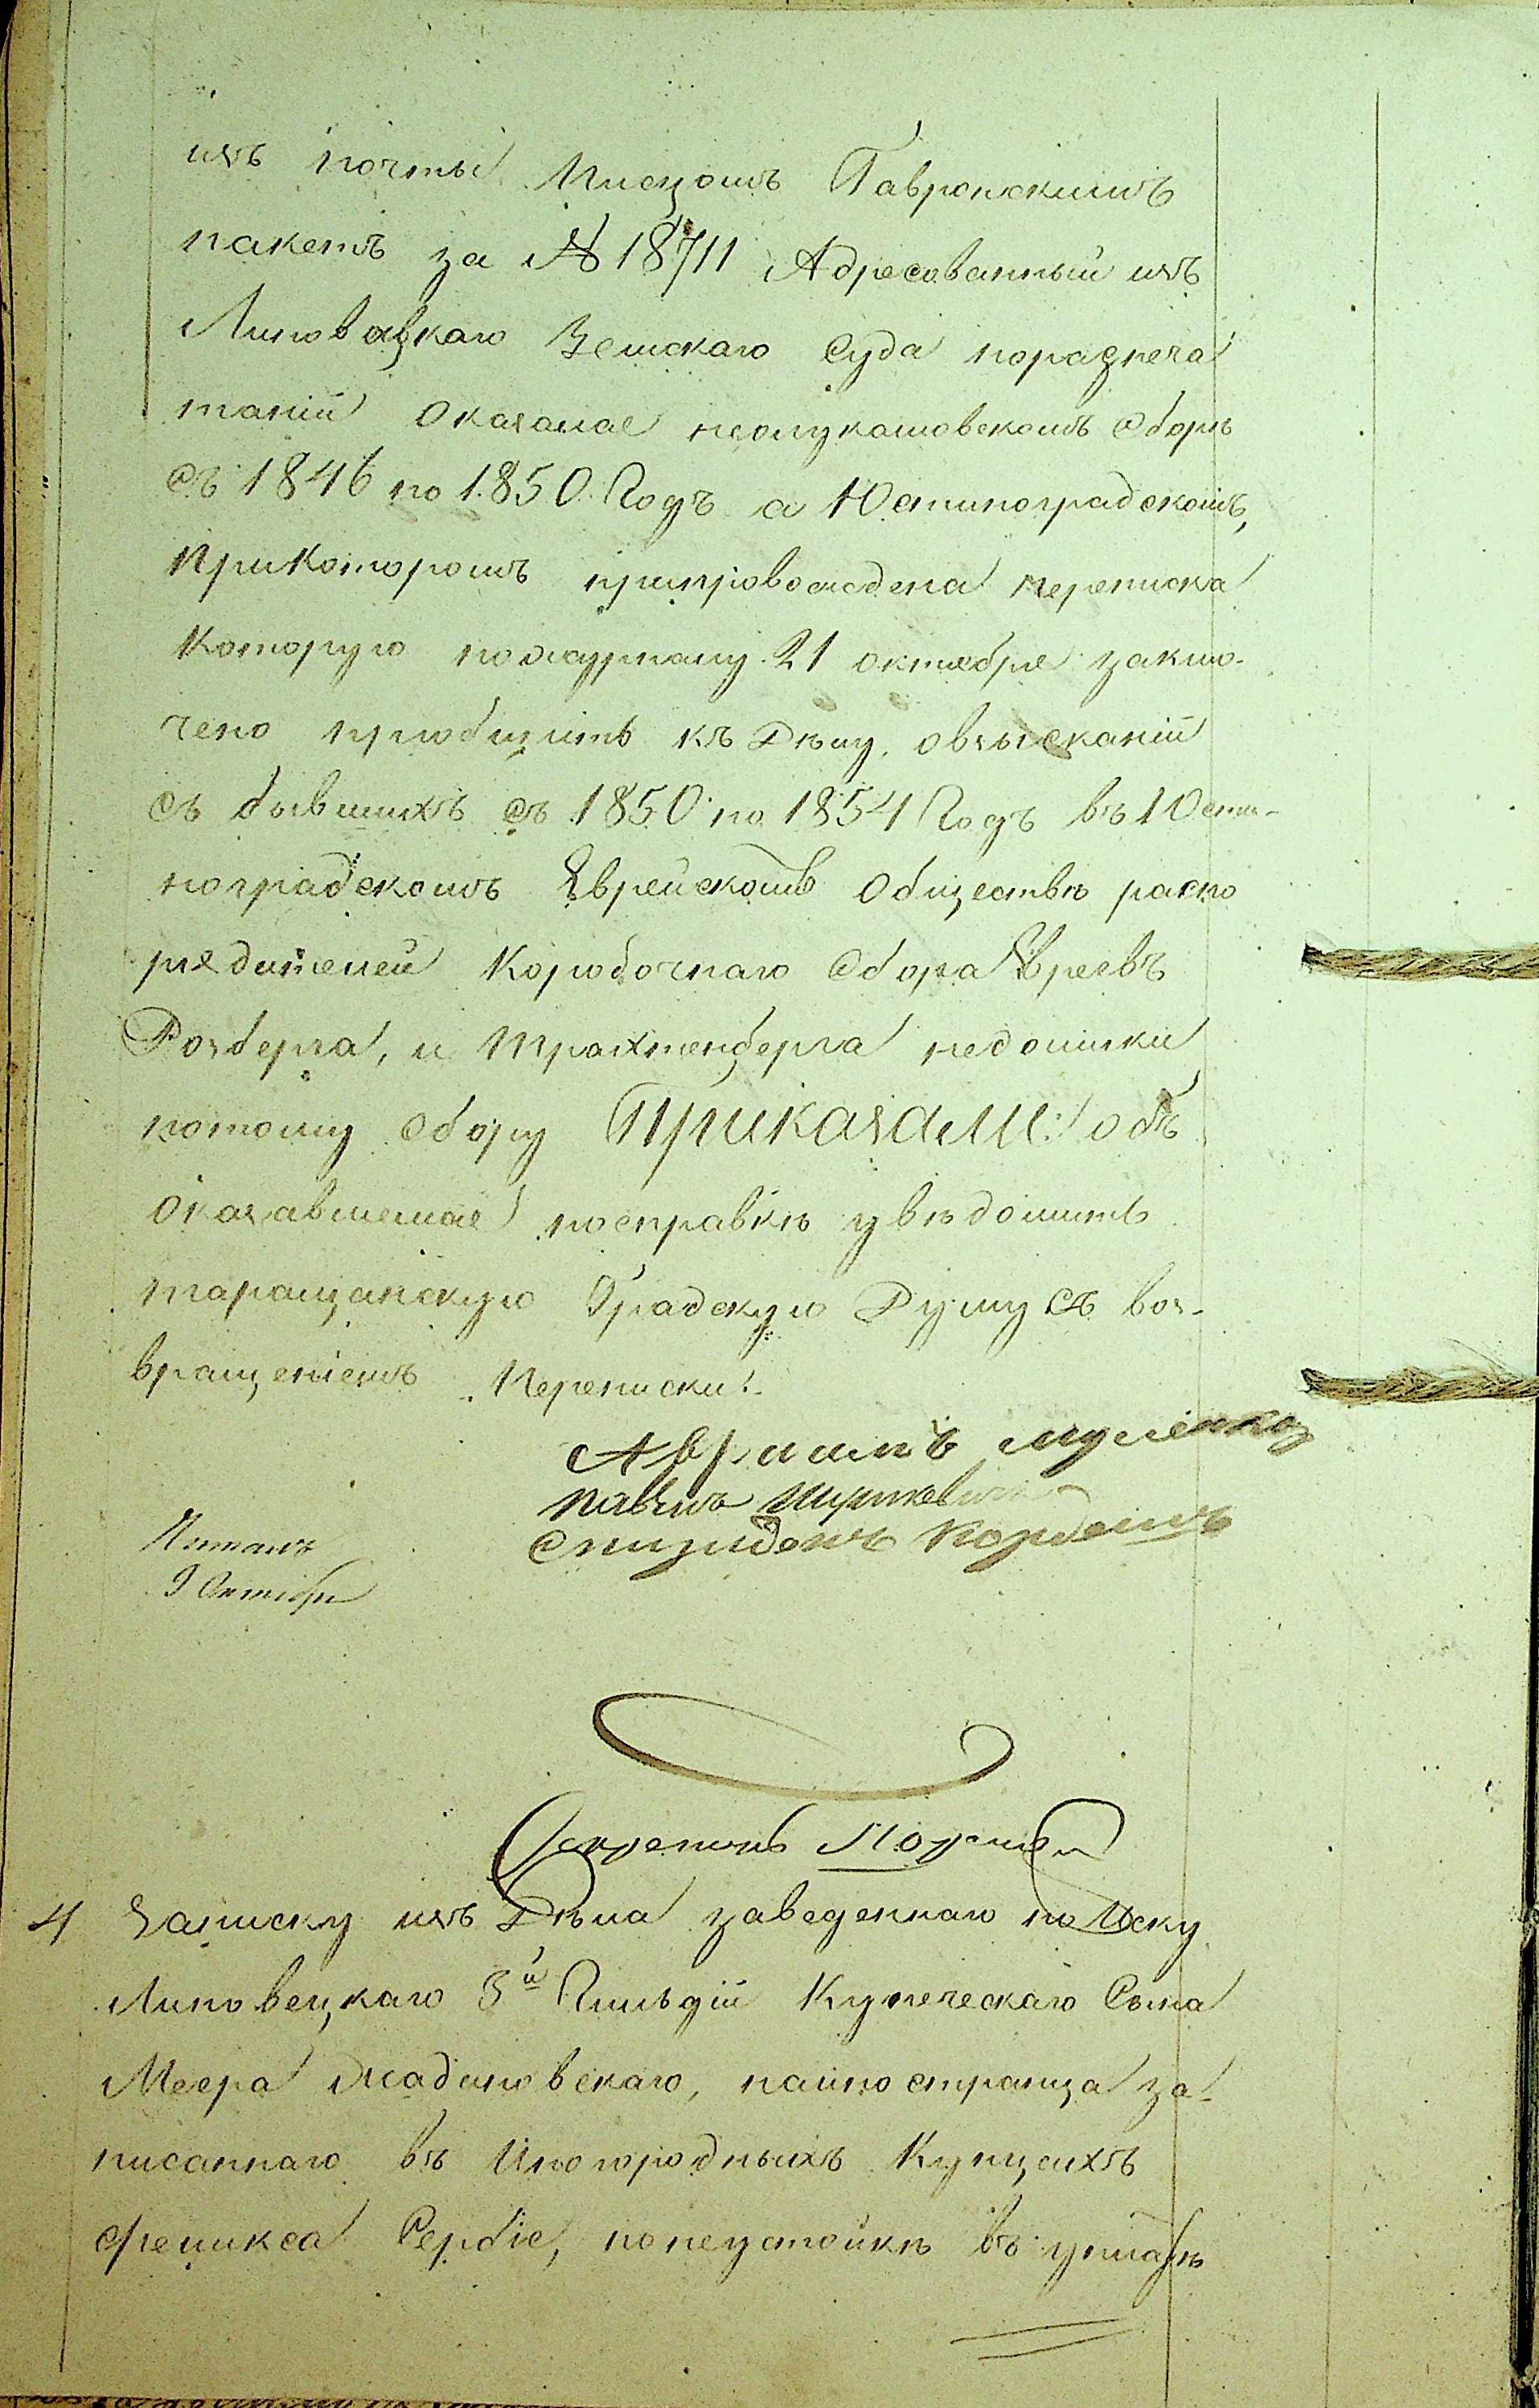 изъ почты Писцомъ Гавронскимъ
пакетъ за № 18711 Адресованный изъ
Липовецкаго Земскаго Суда пораспеча
таніи Оказалась неолукашовскомъ сборѣ
съ 1846 по 1850 Годъ а Юстиноградскомъ,
При Которомъ припровождена переписка
Которую пожурналу 21 октября заклю-
чено приобщить къ Дѣлу, овзысканіи
съ бывшихъ съ 1850 по 1854 Годъ въ Юсти-
ноградскомъ Еврейскомъ Обществѣ распо
рядителей Коробочнаго Сбора Евреевъ
Розберга, и Трахтенберга недоимки
потому Сбору Приказали: объ
Оказавшемся посправкѣ увѣдомить
таращанскую Градскую Думу съ воз-
вращеніемъ Переписки.
Абрамъ
Павелъ
Спиридонъ
Читалъ
9 Октября
Секретарь
4 Записку изъ Дѣла заведеннаго по Иску
Липовецкаго 3й Гильдіи Купеческаго Сына
Меера Жадановскаго, наиностранца за-
писаннаго въ Иногородныхъ Купцахъ
Феликса Сербіе, понеустойкѣ въ уплатѣ